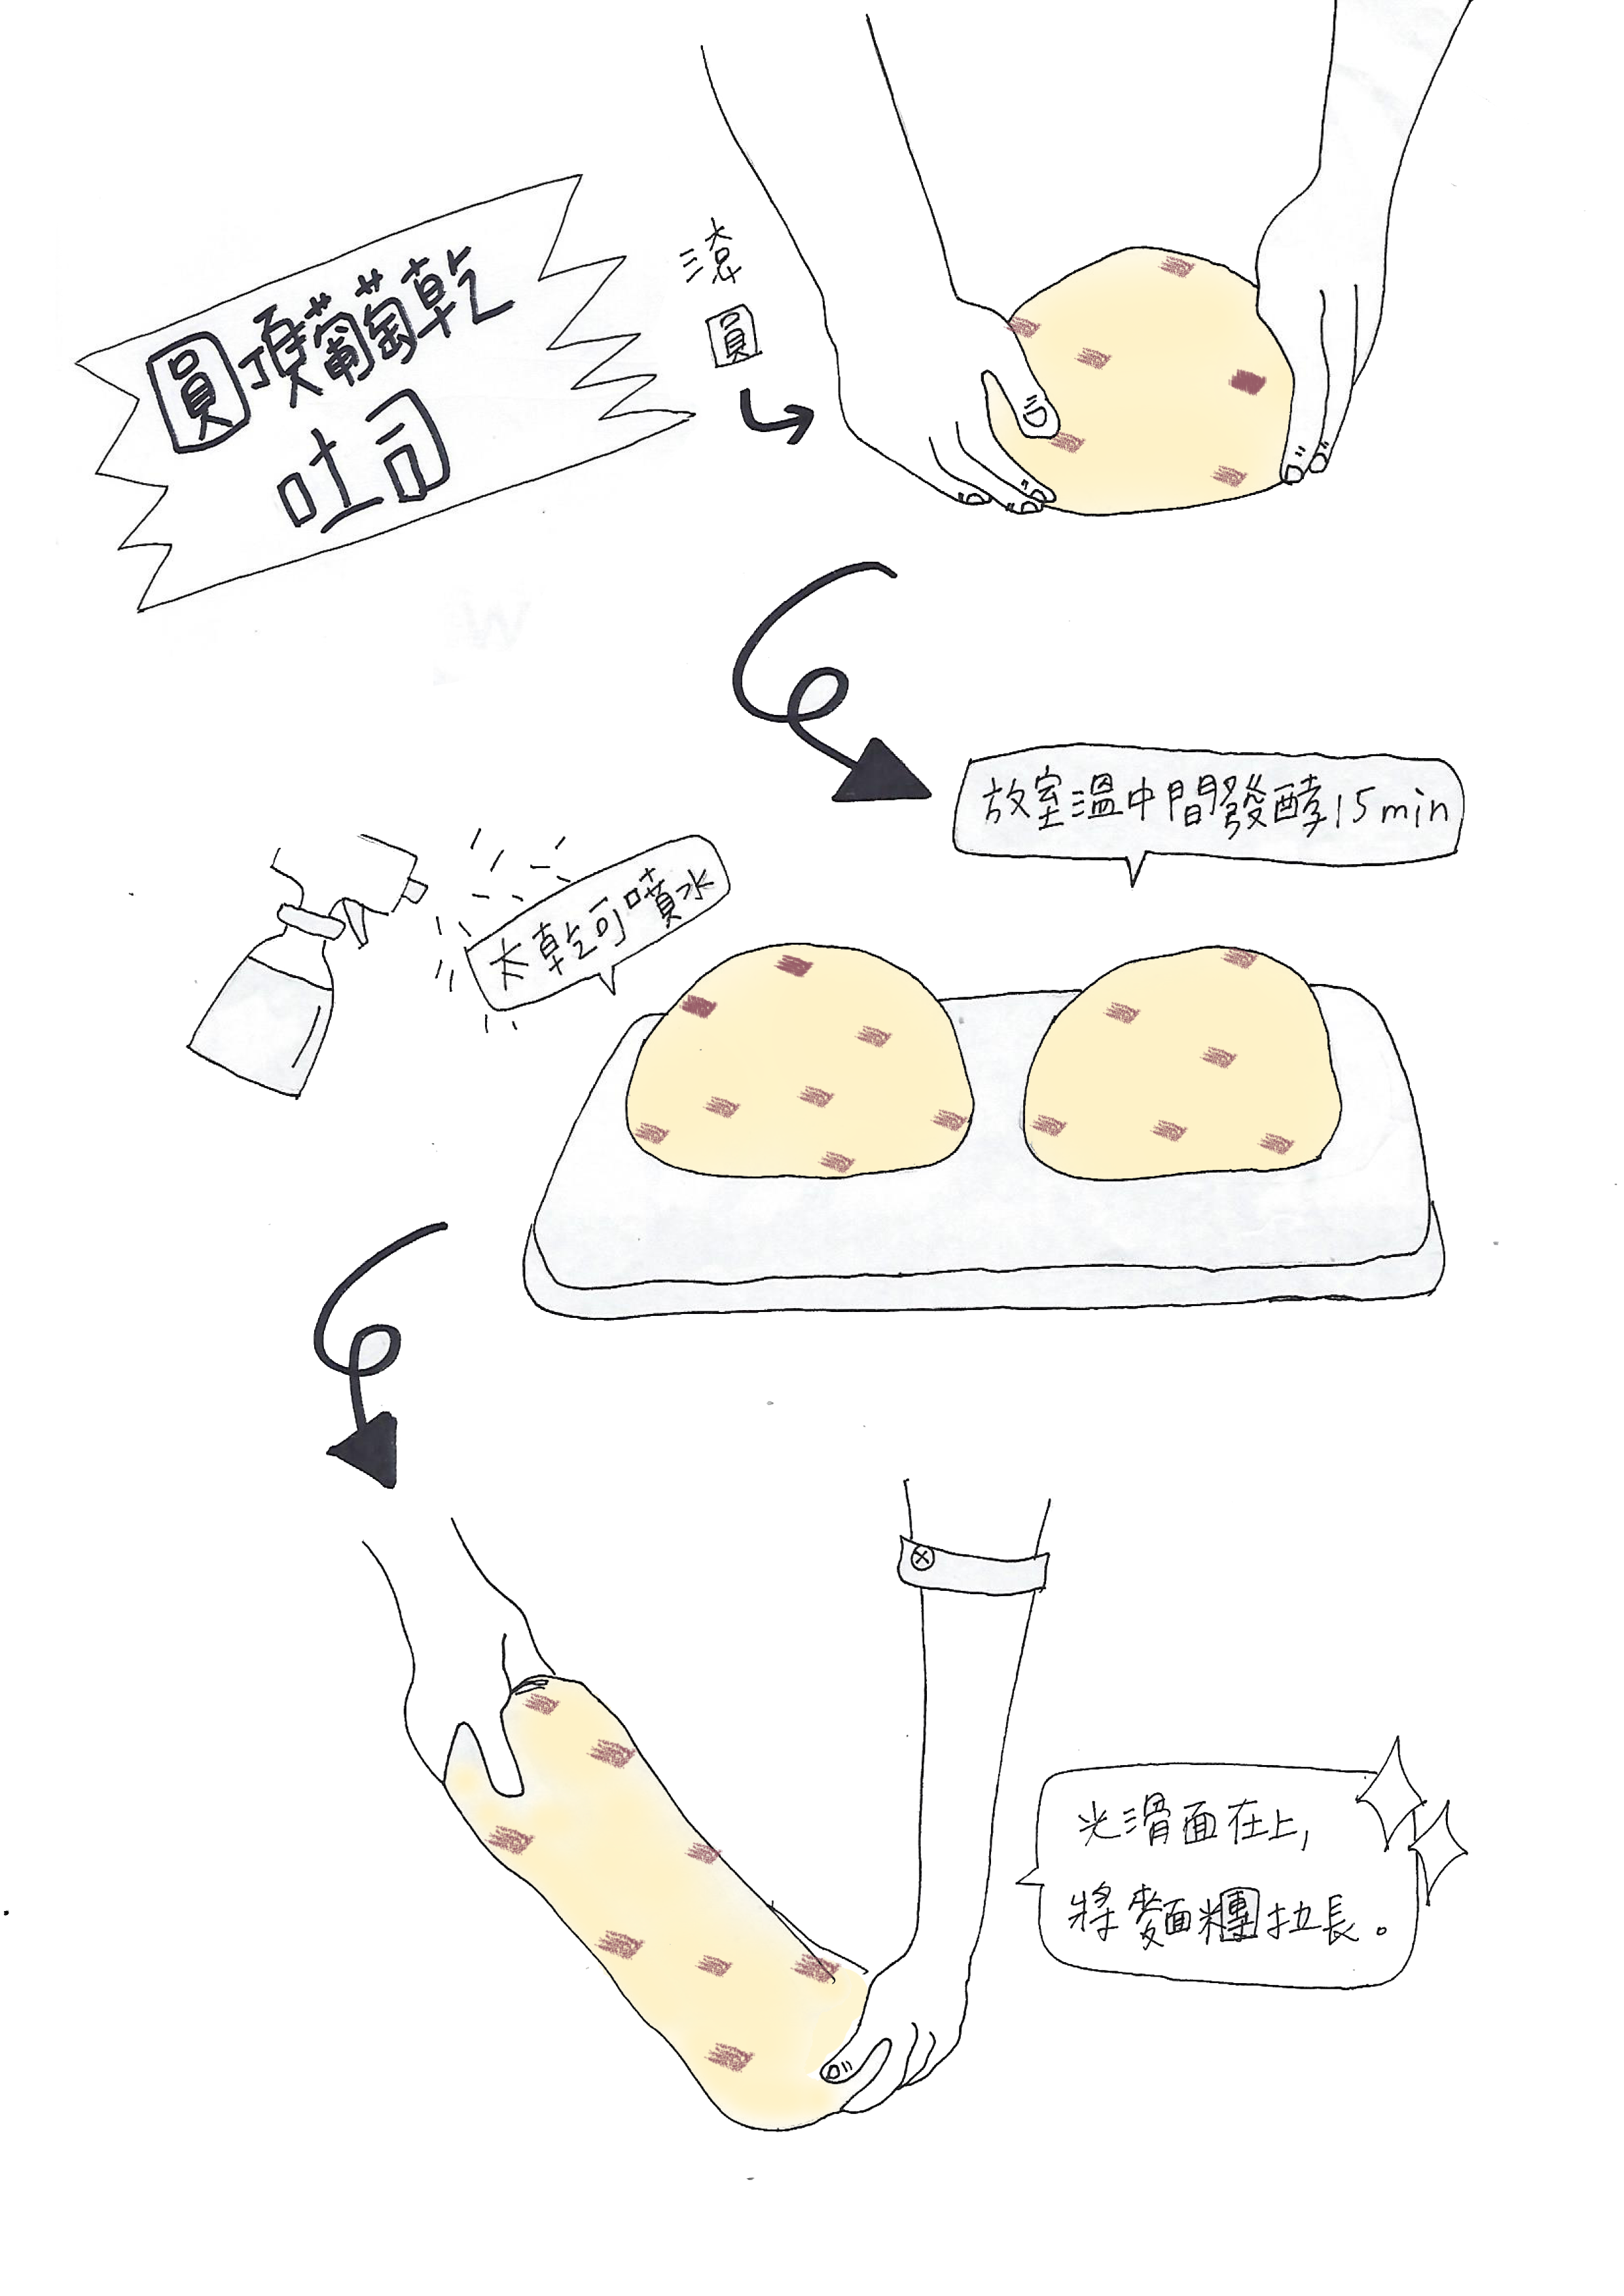 圓頂葡萄乾
吐司
滾
圓
放室溫中間發酵15min
太乾可噴水
光滑面在上,
將麵糰拉長。